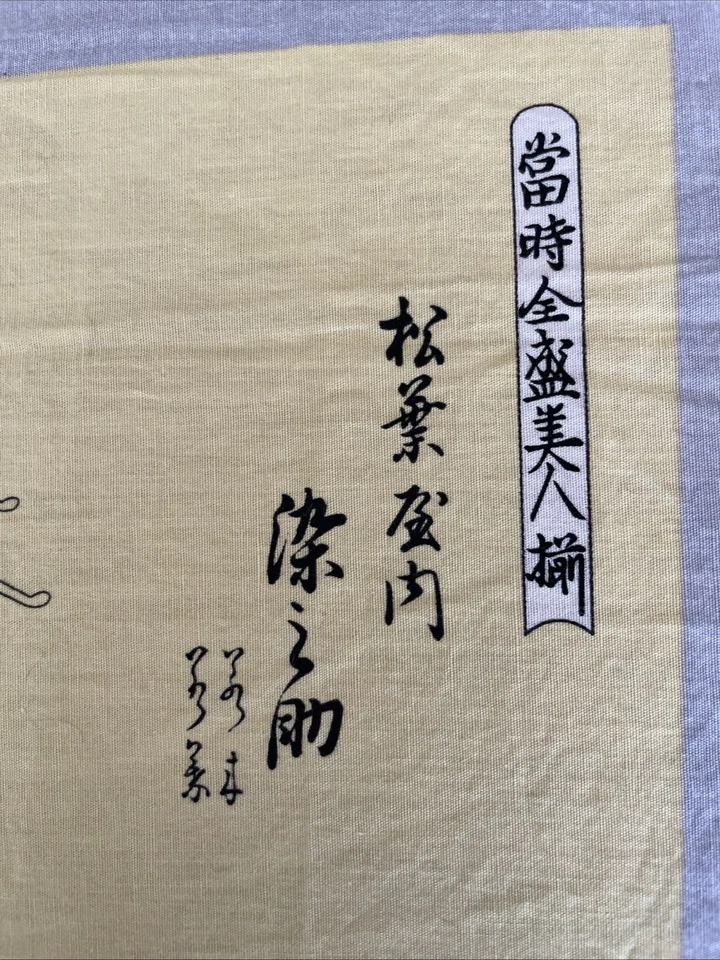 當時全盛美人揃
松葉屋内
染之助